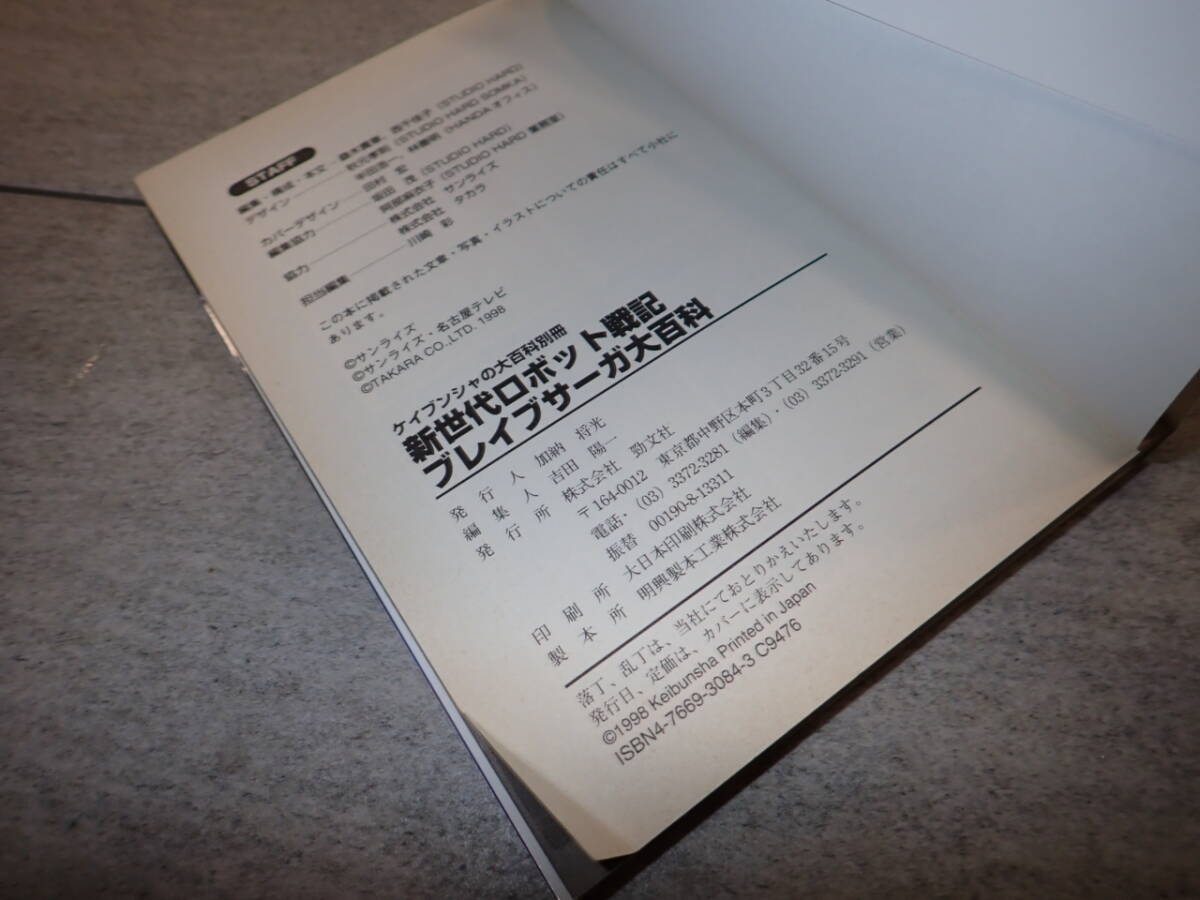 STAFF
編集・構成・本文 (STUDIO HARD)
デザイン (STUDIO HARD SOMKA)
半田浩一、 (HANDAオフィス)
カバーデザイン 田村 宏 (STUDIO HARD)
編集協力 坂田 茂 (STUDIO HARD 業務室)
阿部麻衣子
協力 株式会社 サンライズ
株式会社 タカラ
担当編集 川崎 彩
この本に掲載された文章・写真・イラストについての責任はすべて小社に
あります。
©サンライズ
©サンライズ・名古屋テレビ
©TAKARA CO.,LTD. 1998
ケイブンシャの大百科別冊
新世代ロボット戦記
ブレイブサーガ大百科
発行人 加納 将光
編集人 吉田 陽一
発行所 株式会社 勁文社
〒164-0012 東京都中野区本町3丁目32番15号
電話・(03) 3372-3281 (編集)・(03) 3372-3291 (営業)
振替 00190-8-13311
印刷所 大日本印刷株式会社
製本所 明興製本工業株式会社
落丁、乱丁は、当社にておとりかえいたします。
発行日、定価は、カバーに表示してあります。
©1998 Keibunsha Printed in Japan
ISBN4-7669-3084-3 C9476